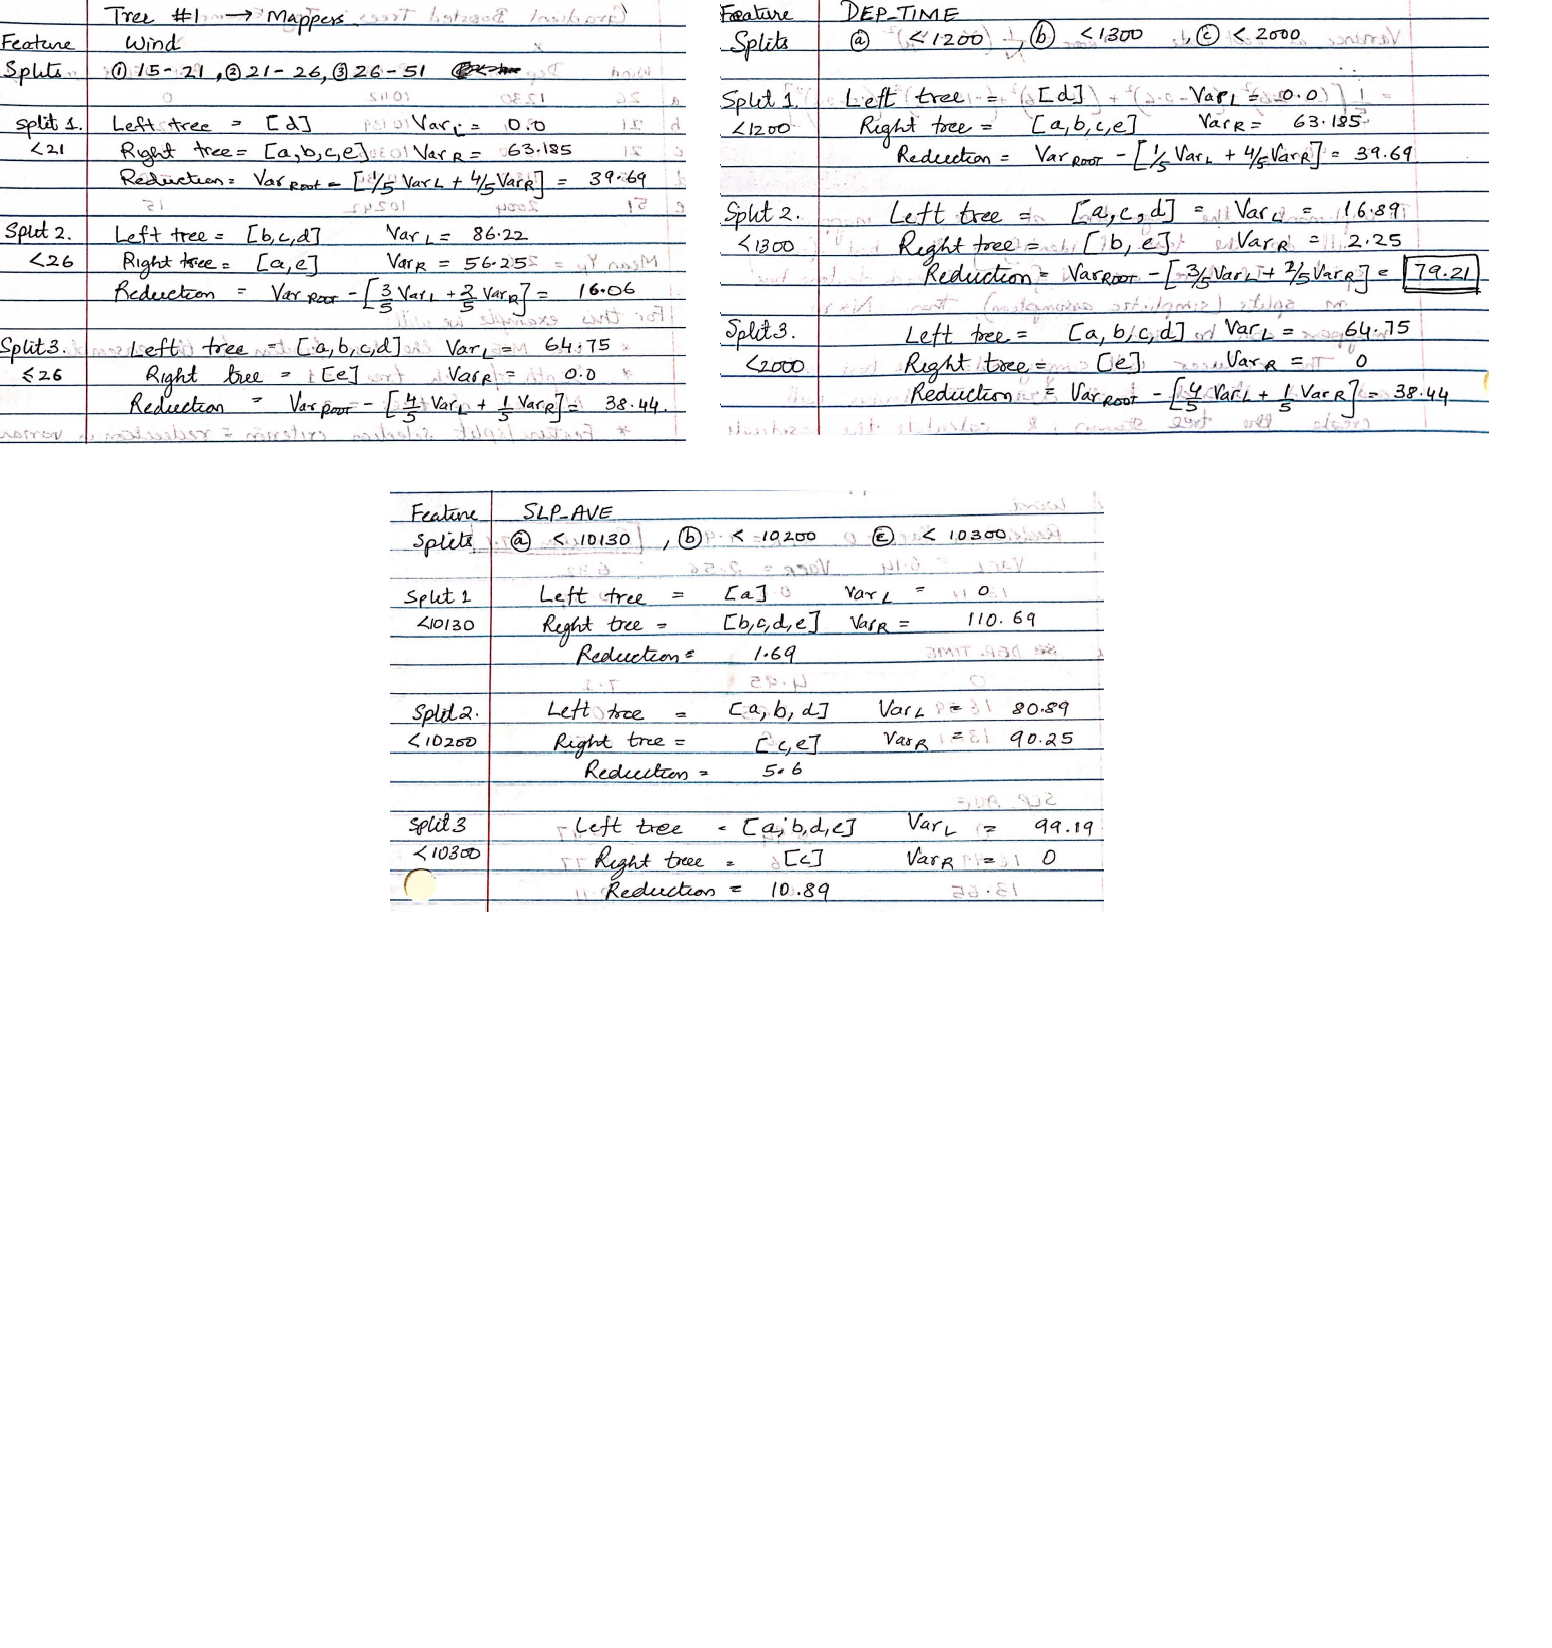 Tree #1 → Mappers
Feature Wind
Splits ① 15-21, ② 21-26, ③ 26-51
split 1. Left tree = [d] Var L = 0.0
<21 Right tree = [a,b,c,e] Var R = 63.185
Reduction = Var Root - [1/5 Var L + 4/5 Var R] = 39.69
Split 2. Left tree = [b,c,d] Var L = 86.22
<26 Right tree = [a,e] Var R = 56.25
Reduction = Var Root - [3/5 Var L + 2/5 Var R] = 16.06
Split 3. Left tree = [a,b,c,d] Var L = 64.75
≤26 Right tree = [e] Var R = 0.0
Reduction = Var Root - [4/5 Var L + 1/5 Var R] = 38.44
Feature DEP_TIME
Splits ⓐ <1200, ⓑ <1300, ⓒ <2000
Split 1. Left tree = [d] Var L = 0.0
<1200 Right tree = [a,b,c,e] Var R = 63.185
Reduction = Var ROOT - [1/5 Var L + 4/5 Var R] = 39.69
Split 2. Left tree = [a,c,d] = Var L = 16.89
<1300 Right tree = [b,e] Var R = 2.25
Reduction = Var ROOT - [3/5 Var L + 2/5 Var R] = 79.21
Split 3. Left tree = [a,b,c,d] Var L = 64.75
<2000 Right tree = [e] Var R = 0
Reduction = Var ROOT - [4/5 Var L + 1/5 Var R] = 38.44
Feature SLP_AVE
Splits ⓐ < 10130, ⓑ < 10200 ⓒ < 10300
Split 1 Left tree = [a] Var L = 0
<10130 Right tree = [b,c,d,e] Var R = 110.69
Reduction = 1.69
Split 2. Left tree = [a,b,d] Var L = 80.89
<10200 Right tree = [c,e] Var R = 90.25
Reduction = 5.6
Split 3 Left tree = [a,b,d,e] Var L = 99.19
<10300 Right tree = [c] Var R = 0
Reduction = 10.89